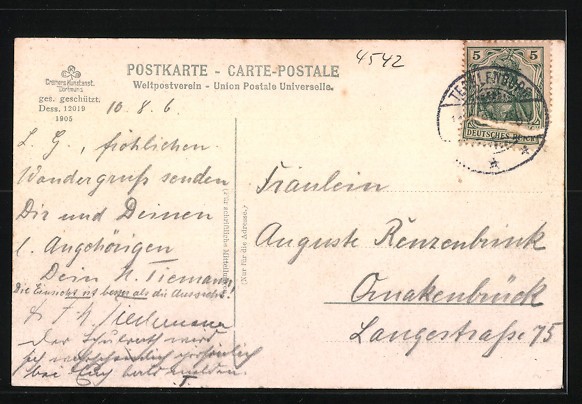 4542
Cramers Kunstanst.
Dortmund
ges. geschützt.
Dess. 12019
1905
POSTKARTE - CARTE-POSTALE
Weltpostverein - Union Postale Universelle.
5 5
DEUTSCHES REICH
TECKLENBURG
10.8.6
L. G., fröhlichen
Wandergruß senden
Dir und Deinen
l. Angehörigen
Dein H. Tiemann
Die Einsicht ist besser als die Aussicht!
Der Schulrath wird
sich
bei Euch bald melden.
T.
(Für schriftliche Mitteilungen.)
(Nur für die Adresse.)
Fräulein
Auguste Renzenbrink
Quakenbrück
Langestraße 75